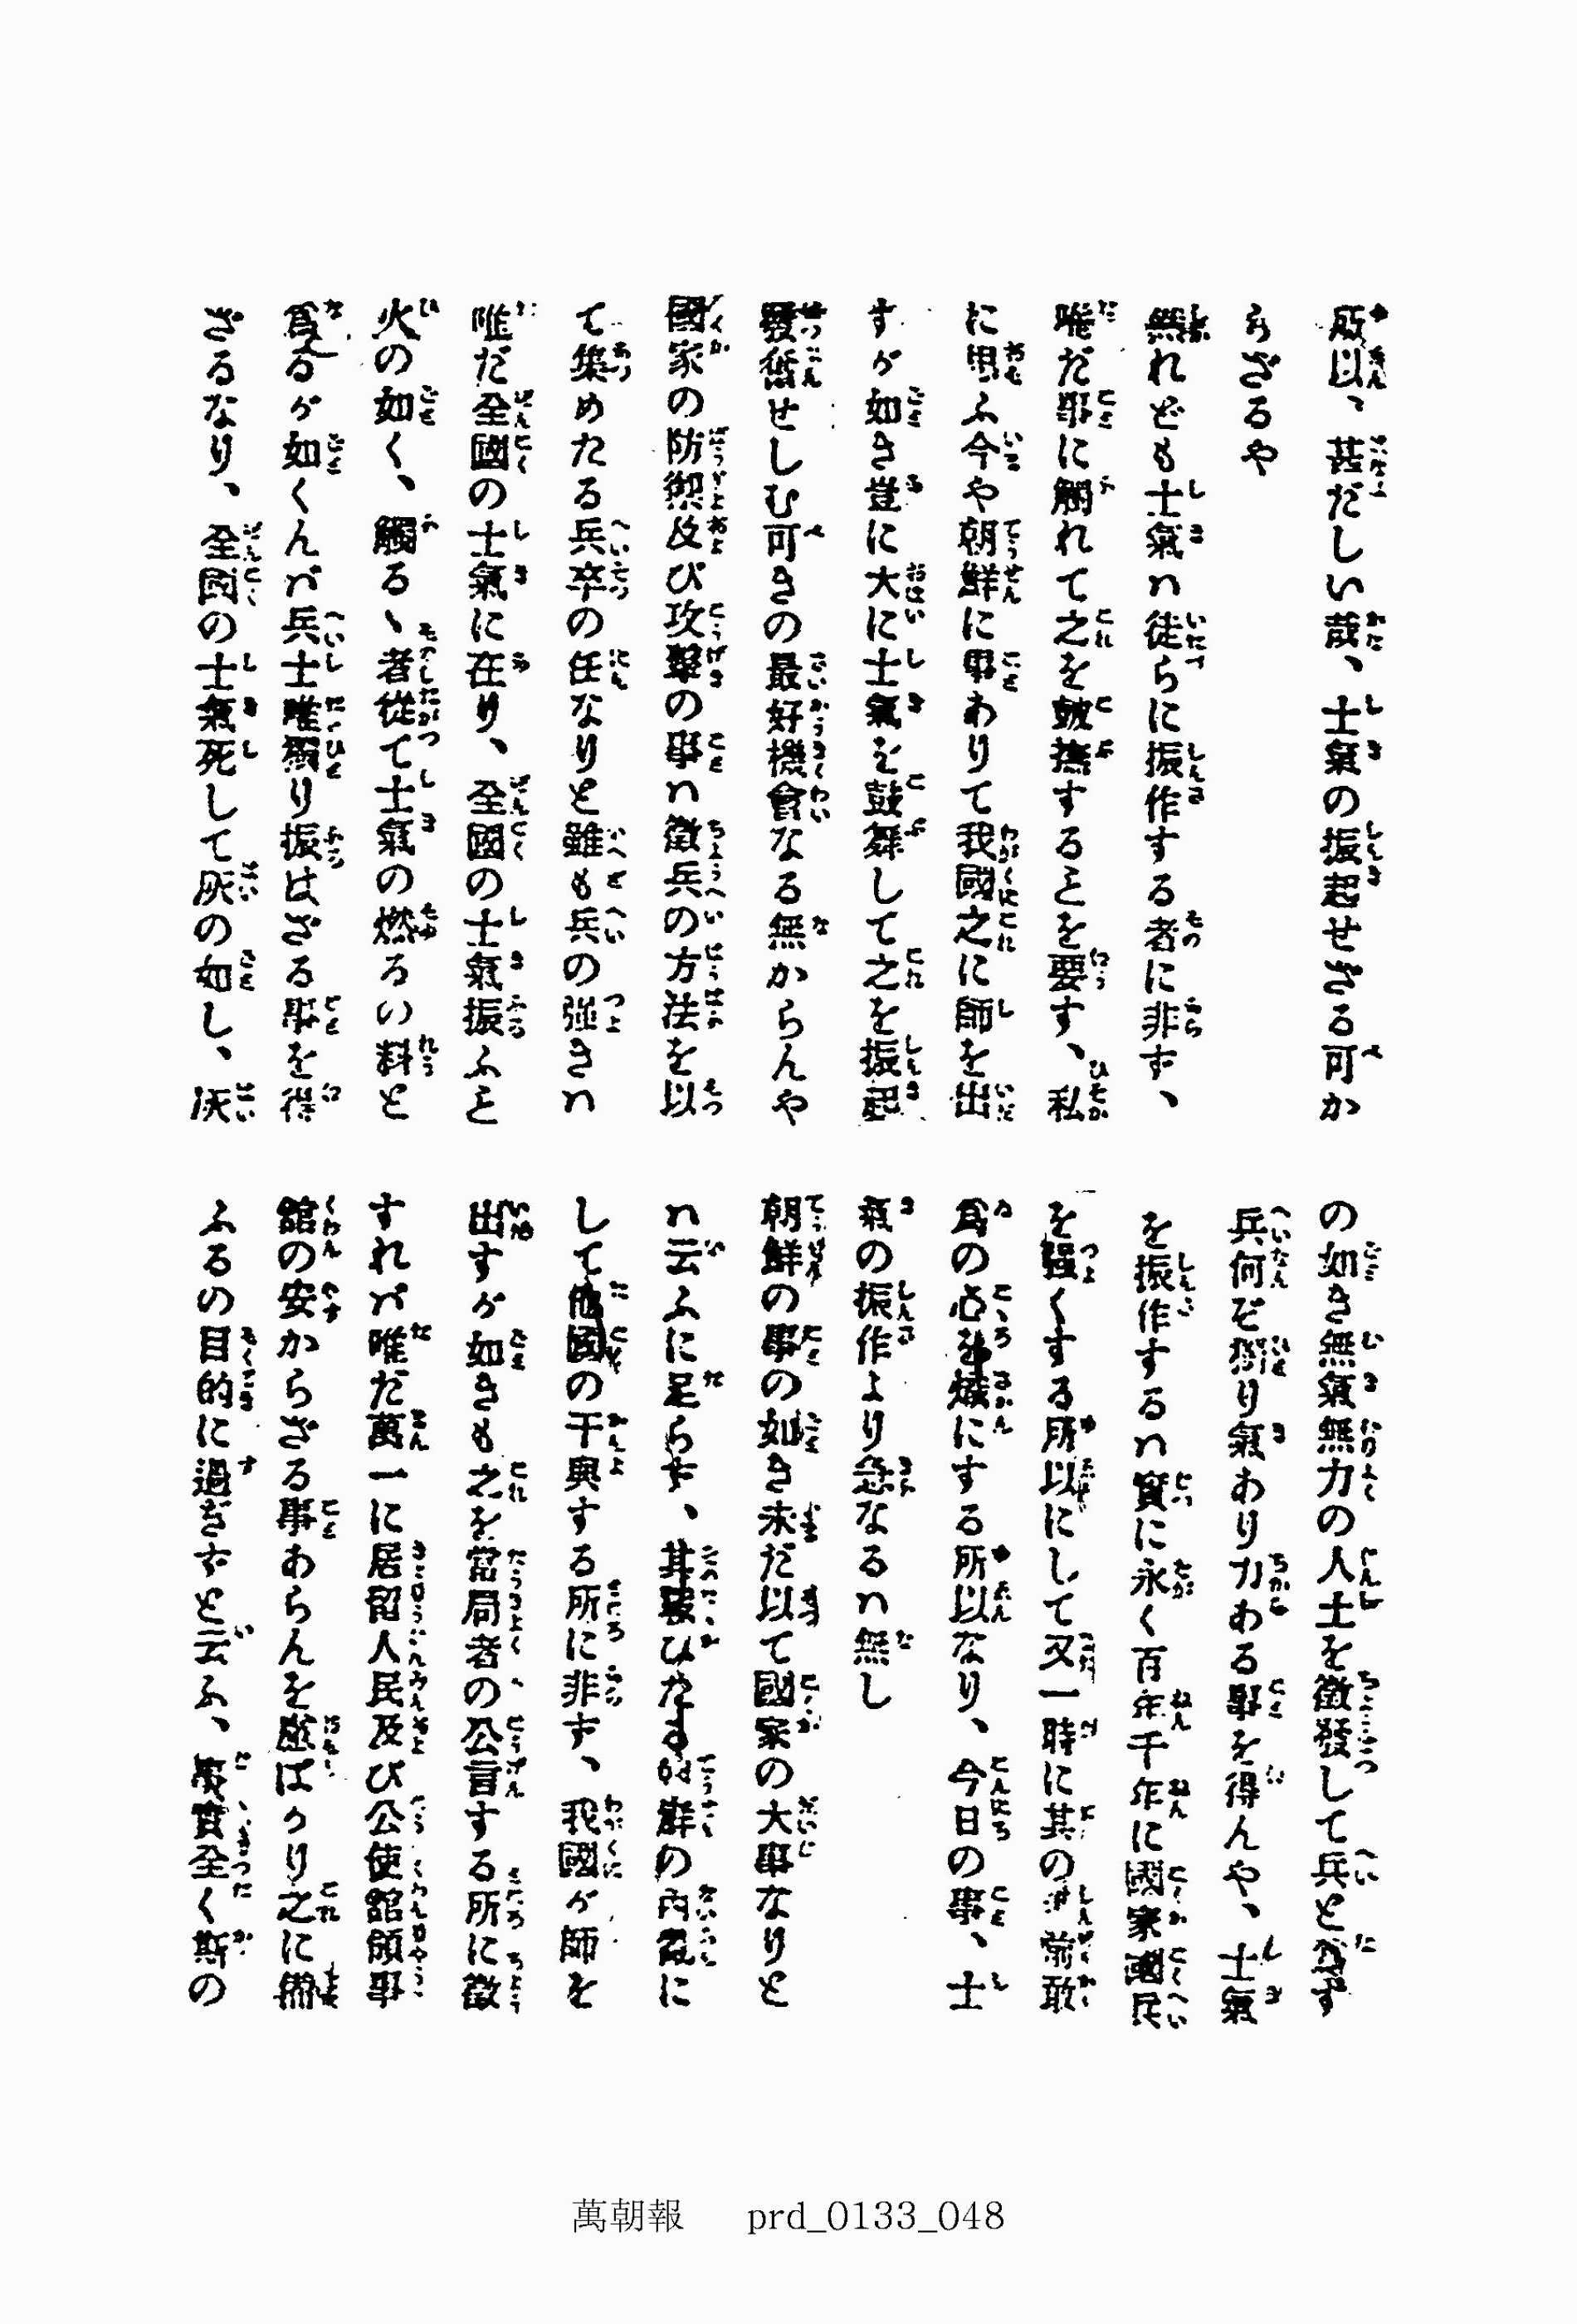 所以、甚だしい哉、士氣の振起せざる可か
らざるや
然れども士氣ハ徒らに振作する者に非ず、
唯だ事に觸れて之を鼓撫するとを要す、私
に思ふ今や朝鮮に事わりて我國之に師を出
すが如き豈に大に士氣を鼓舞して之を振起
發奮せしむ可きの最好機會なる無からんや
國家の防禦及び攻擊の事ハ徴兵の方法を以
て集めたる兵卒の任なりと雖も兵の强きハ
唯だ全國の士氣に在り、全國の士氣振ふと
火の如く、觸るゝ者從て士氣の燃るい料と
爲るが如くんバ兵士唯獨り振はざる事を得
ざるなり、全國の士氣死して灰の如し、灰
の如き無氣無力の人士を徴發して兵と爲す
兵何ぞ獨り氣わり力わる事を得んや、士氣
を振作するハ實に永く百年千年に國家國民
を强くする所以にして又一時に其の 前敢
爲の心を熾にする所以なり、今日の事、士
氣の振作より急なるハ無し
朝鮮の事の如き未だ以て國家の大事なりと
ハ云ふに足らず、其 ひたる 鮮の内亂に
して他國の干與する所に非ず、我國が師を
出すが如きも之を當局者の公言する所に徴
すれバ唯だ萬一に居留人民及び公使舘領事
舘の安からざる事あらんを慮ばかり之に備
ふるの目的に過ぎずと云ふ、事實全く斯の
萬朝報 prd_0133_048